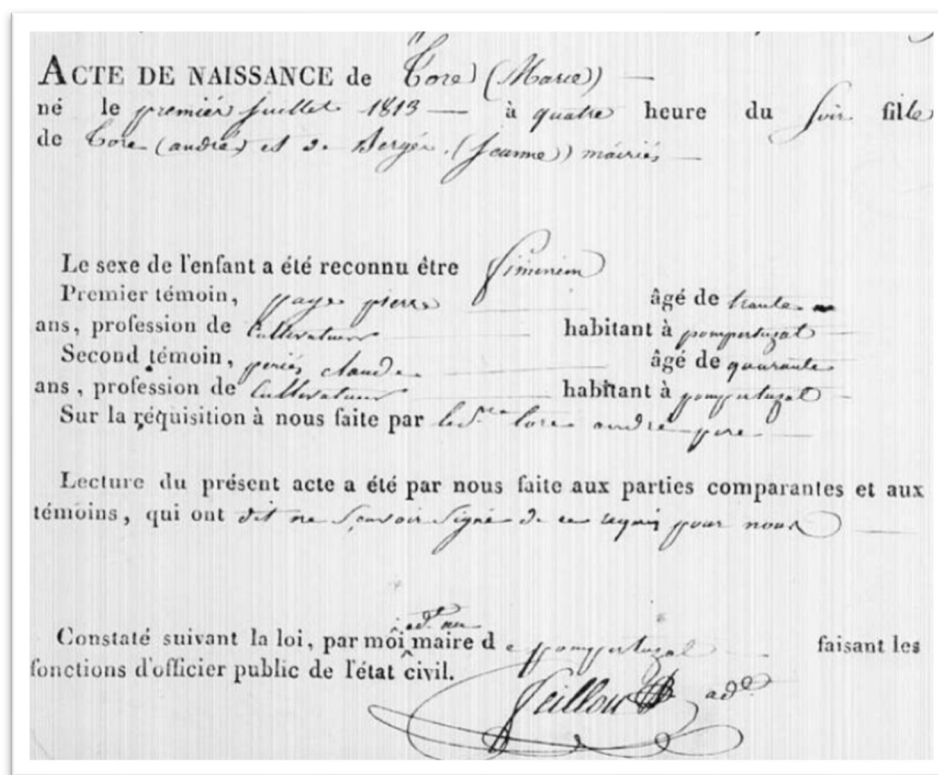 ACTE DE NAISSANCE de Tore (Marie)
né le premier juillet 1813 à quatre heure du soir fille
de Tore (andré) et de Bergés (Jeanne) mariés
Le sexe de l'enfant a été reconnu être féminin
Premier témoin, page pierre âgé de trante
ans, profession de Cultivateur habitant à pompertuzat
Second témoin, claude âgé de quarante
ans, profession de Cultivateur habitant à pompertuzat
Sur la réquisition à nous faite par tore andré pere
Lecture du présent acte a été par nous faite aux parties comparantes et aux
témoins, qui ont dit ne savoir signé de ce requis pour nous
Constaté suivant la loi, par moi maire de pompertuzat faisant les
fonctions d'officier public de l'état civil.